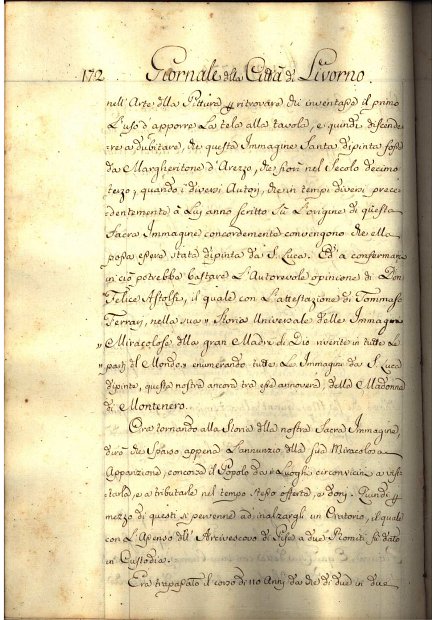 172 Giornale della Città di Livorno.
nell'Arte dlla Pittura p ritrovare chi inventasse il primo
l'uso d'apporre la tela alla tavola, e quindi discende
re a dubitare, che questa Immagine Santa dipinta fosse
da Margheritone d'Arezzo, che fiorì nel Secolo decimo
terzo, quando i diversi Autori, che in tempi diversi prece
dentemente à Lui anno scritto sù l'origine di questa
Sacra Immagine concordemente convengono che ella
possa essere stata dipinta da S. Luca. Ed a confermare
in ciò potrebbe bastare l'Autorevole opinione di Don
Felice Astolfi, il quale con l'attestazione di Tommaso
Ferrari, nella sua „ Storia Universale delle Immagini
„ Miracolose della gran Madre di Dio riverite in tutte le
parti dl Mondo„ enumerando tutte le Immagini da S. Luca
dipinte, questa nostra ancora tra esse annovera, della Madonna
di Montenero.
Ora tornando alla Storia dlla nostra Sacra Immagine,
dirò che Sparso appena l'annunzio della sua Miracolosa
Apparizione, concorse il Popolo da i Luoghi circonvicini a visi
tarla, e a tributarle nel tempo stesso offerte, e doni. Quindi p
mezzo di questi si pervenne ad inalzargli un Oratorio, il quale
con l'Assenso dll'Arcivescovo di Pisa a due Romiti fù dato
in Custodia.
Era trapassato il corso di 110 Anni da che di due in due